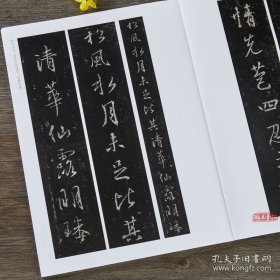 松風水月未足比其清華仙露明珠
松風水月未足比其
清華仙露明珠
先苞四
孔夫子旧书网